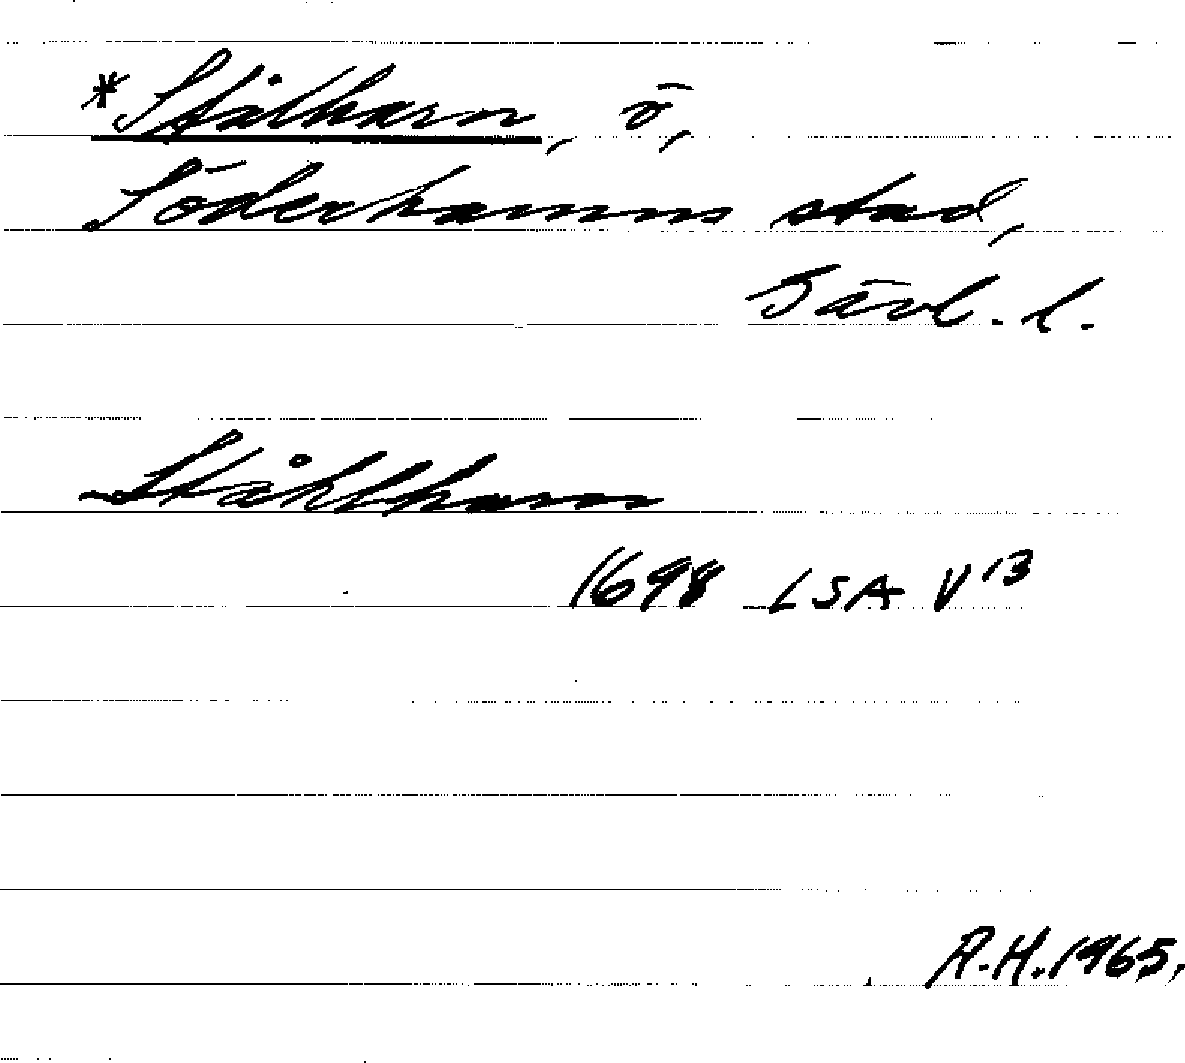 *Stålharn, ö,
Söderhamns stad,
Gävl. l.
Ståhlharn
1698 LSA V 13
R.H. 1965.